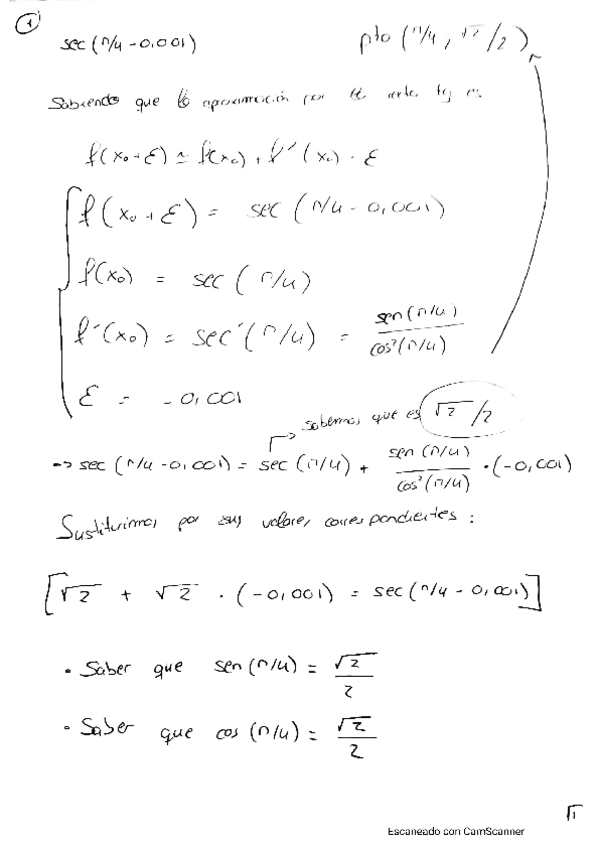 1
sec(π/4 - 0,001)    pto (π/4, √2/2)
Sabiendo que la aproximación por la recta tg es
f(x₀+ε) ≃ f(x₀) + f'(x₀) · ε
f(x₀+ε) = sec(π/4 - 0,001)
f(x₀) = sec(π/4)
f'(x₀) = sec'(π/4) = sen(π/4)/cos²(π/4)
ε = -0,001
sabemos que es √2/2
-> sec(π/4 - 0,001) = sec(π/4) + sen(π/4)/cos²(π/4) · (-0,001)
Sustituimos por sus valores correspondientes:
[√2 + √2 · (-0,001) = sec(π/4 - 0,001)]
· Saber que sen(π/4) = √2/2
· Saber que cos(π/4) = √2/2
Escaneado con CamScanner